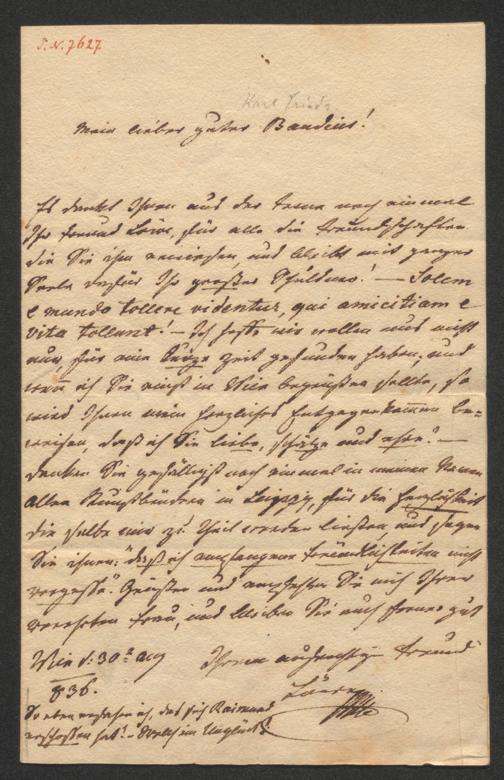 I. N. 7627
Karl Friedr.
Mein lieber guter Baudius!
Es dankt Ihnen aus der Ferne noch einmal
Ihr Freund Löwe, für alle die Freundschaften
die Sie ihm erwiesen und bleibt mit ganzer
Seele dafür Ihr großer Schuldner! – Solem
e mundo tollere videntur, qui amicitiam e
vita tollunt! – Ich hoffe wir wollen uns nicht
nur, für eine kurze Zeit gefunden haben, und
wenn ich Sie einst in Wien begrüßen sollte, so
wird Ihnen mein herzliches Entgegenkommen be-
weisen, daß ich Sie liebe, schätze und ehre! –
Danken Sie gefälligst noch einmal in meinem Namen
allen Kunstbrüdern in Leipzig, für die Herzlichkeit
die selbe mir zu Theil werden ließen, und sagen
Sie ihnen: "daß ich empfangene Freundlichkeiten nicht
vergesse." Grüßen und empfehlen Sie mich Ihrer
verehrten Frau, und bleiben Sie auch ferner gut
Wien d: 30t Aug
Ihrem aufrichtigen Freund
836.
Löwe
So eben erfahre ich, daß sich Raimund
erschossen hat! – Welch ein Unglück!